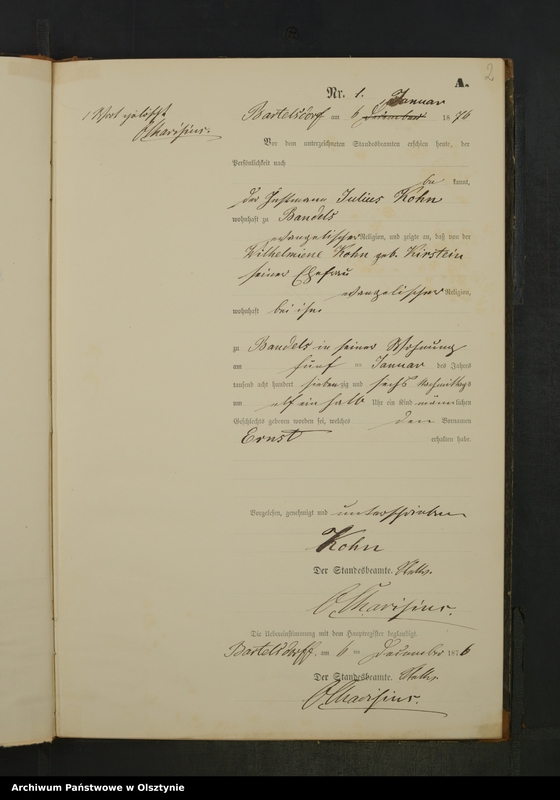 2
A.
Nr. 1.
Januar
Bartelsdorf am 6 Dezember 1876
1 Wort gelöscht
Vor dem unterzeichneten Standesbeamten erschien heute, der
Persönlichkeit nach
be kannt,
der Instmann Julius Kohn
wohnhaft zu Bandels
evangelischer Religion, und zeigte an, daß von der
Wilhelmiene Kohn geb. Kirstein
seiner Ehefrau
evangelischer Religion,
wohnhaft bei ihm
zu Bandels in seiner Wohnung
am fünf ten Januar des Jahres
tausend acht hundert siebenzig und sechs Nachmittags
um elf ein halb Uhr ein Kind männlichen
Geschlechts geboren worden sei, welches den Vornamen
Ernst erhalten habe.
Vorgelesen, genehmigt und unterschrieben
Kohn
Der Standesbeamte.
Die Uebereinstimmung mit dem Hauptregister beglaubigt.
Bartelsdorff. am 6 ten 1876
Der Standesbeamte.
Archiwum Państwowe w Olsztynie